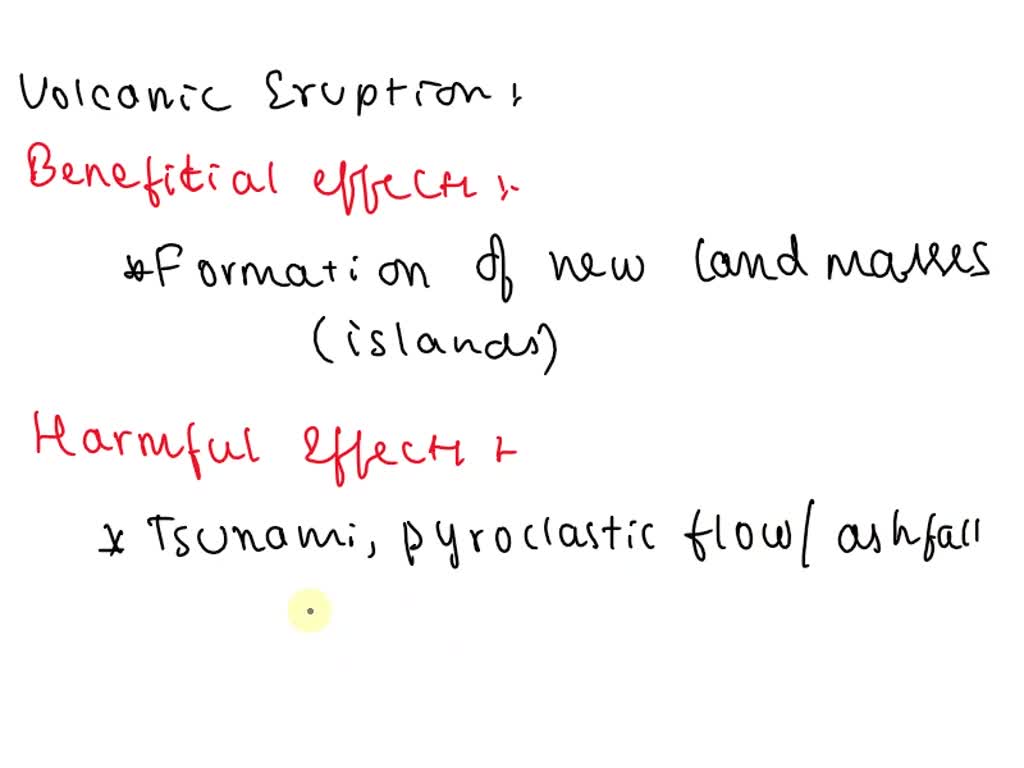 Volcanic Eruption :
Benefitial effects :
* Formation of new land masses
(islands)
Harmful Effects :
* Tsunami, pyroclastic flow / ashfall